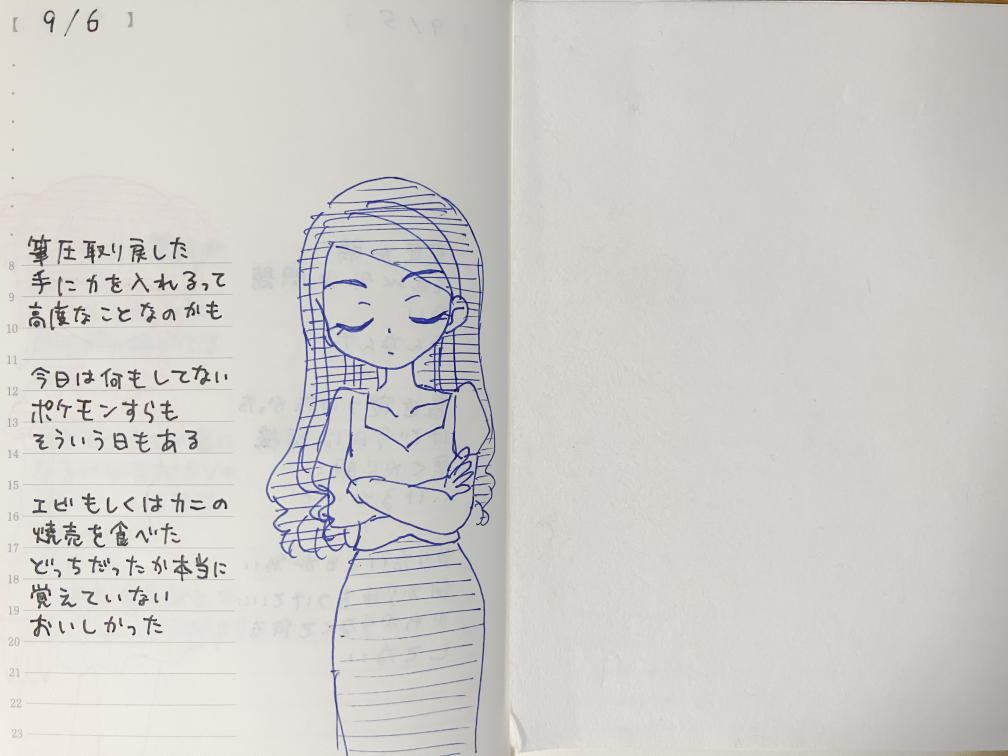 【 9/6 】
筆圧取り戻した
手に力を入れるって
高度なことなのかも
今日は何もしてない
ポケモンすらも
そういう日もある
エビもしくはカニの
焼売を食べた
どっちだったか本当に
覚えていない
おいしかった
8
9
10
11
12
13
14
15
16
17
18
19
20
21
22
23